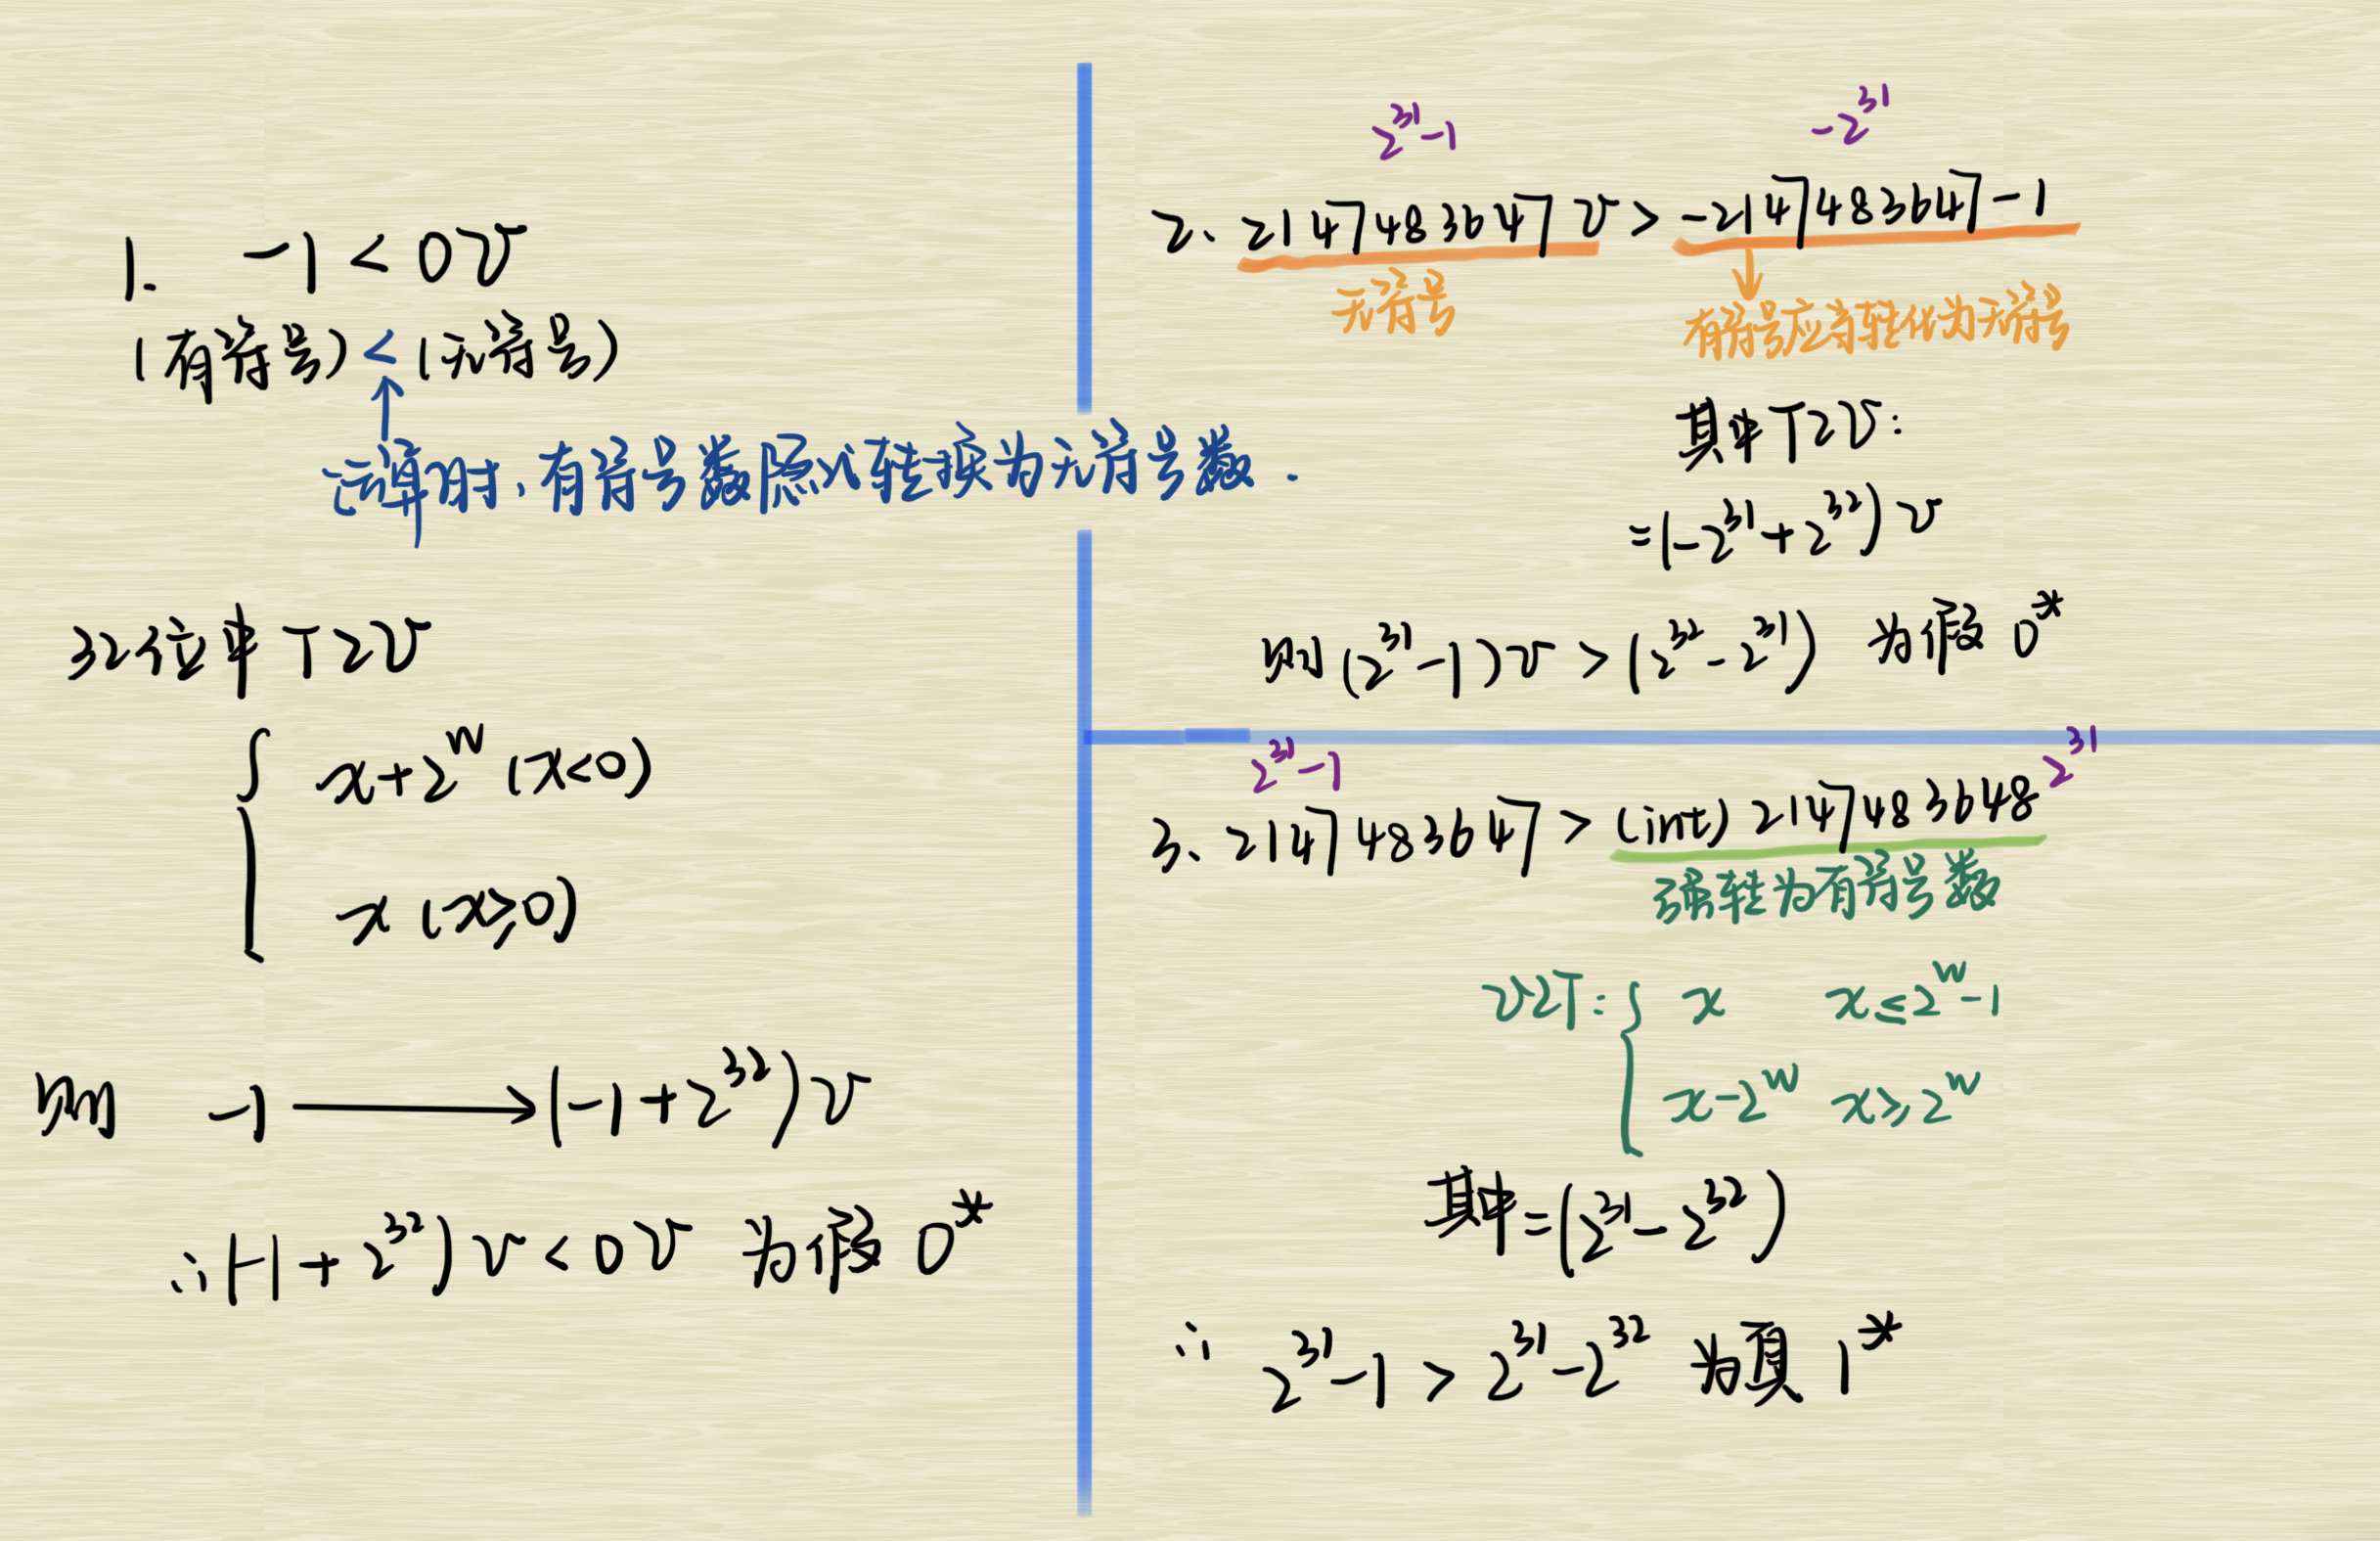 1. -1 < 0U
(有符号) < (无符号)
↑
运算时,有符号数隐式转换为无符号数.
32位中 T2U
{ x+2^w (x<0)
x (x≥0)
则 -1 → (-1+2^32)U
∴ (-1+2^32)U < 0U 为假 0*
2^31-1 -2^31
2、2147483647U > -2147483647-1
无符号
↓
有符号应当转化为无符号
其中T2U:
=(-2^31+2^32)U
则 (2^31-1)U > (2^32-2^31) 为假 0*
2^31-1 2^31
3、2147483647 > (int) 2147483648
强转为有符号数
U2T: { x x≤2^w-1
x-2^w x≥2^w
其中=(2^31-2^32)
∴ 2^31-1 > 2^31-2^32 为真 1*